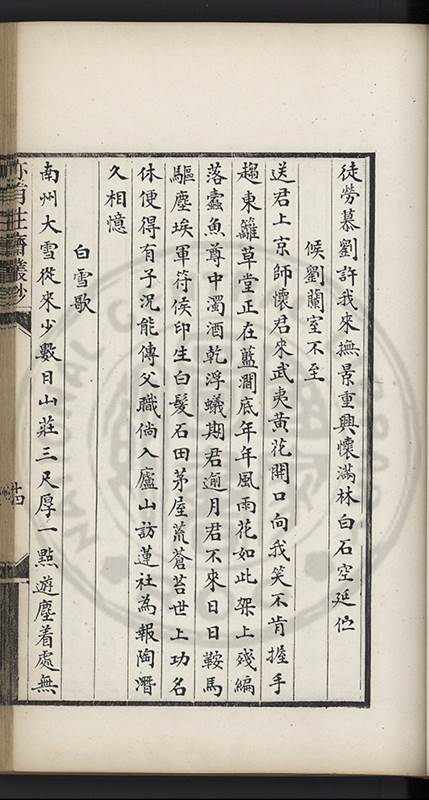 徒勞慕劉許我來撫景重興懷滿林白石空延佇
候劉蘭室不至
送君上京師懷君來武夷黃花開口向我笑不肯握手
趨東籬草堂正在藍澗底年年風雨花如此架上殘編
落蠹魚尊中濁酒乾浮蟻期君逾月君不來日日鞍馬
驅塵埃軍符侯印生白髮石田茅屋荒蒼苔世上功名
休便得有子況能傳父職倘入廬山訪蓮社為報陶潛
久相憶
白雪歌
南州大雪從來少數日山莊三尺厚一點遊塵着處無
亦有生齋叢鈔